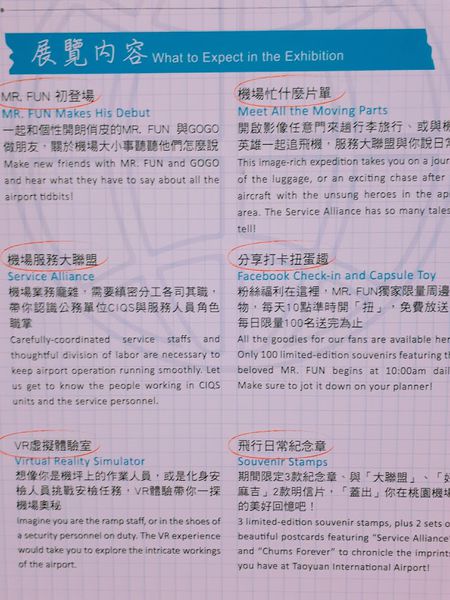 展覽內容 What to Expect in the Exhibition
MR. FUN 初登場
MR. FUN Makes His Debut
一起和個性開朗俏皮的MR. FUN 與GOGO
做朋友，關於機場大小事聽聽他們怎麼說
Make new friends with MR. FUN and GOGO
and hear what they have to say about all the
airport tidbits!
機場服務大聯盟
Service Alliance
機場業務龐雜，需要縝密分工各司其職，
帶你認識公務單位CIQS與服務人員角色
職掌
Carefully-coordinated service staffs and
thoughtful division of labor are necessary to
keep airport operation running smoothly. Let
us get to know the people working in CIQS
units and the service personnel.
VR虛擬體驗室
Virtual Reality Simulator
想像你是機坪上的作業人員，或是化身安
檢人員挑戰安檢任務，VR體驗帶你一探
機場奧秘
Imagine you are the ramp staff, or in the shoes of
a security personnel on duty. The VR experience
would take you to explore the intricate workings
of the airport.
機場忙什麼片單
Meet All the Moving Parts
開啟影像任意門來趟行李旅行、或與機
英雄一起追飛機，服務大聯盟與你說日常
This image-rich expedition takes you on a jour
of the luggage, or an exciting chase after
aircraft with the unsung heroes in the ap
area. The Service Alliance has so many tales
tell!
分享打卡扭蛋趣
Facebook Check-in and Capsule Toy
粉絲福利在這裡，MR. FUN獨家限量周邊
物，每天10點準時開「扭」，免費放送
每日限量100名送完為止
All the goodies for our fans are available her
Only 100 limited-edition souvenirs featuring th
beloved MR. FUN begins at 10:00am dail
Make sure to jot it down on your planner!
飛行日常紀念章
Souvenir Stamps
期間限定3款紀念章、與「大聯盟」、「好
麻吉」2款明信片，「蓋出」你在桃園機場
的美好回憶吧！
3 limited-edition souvenir stamps, plus 2 sets o
beautiful postcards featuring "Service Alliance"
and "Chums Forever" to chronicle the imprints
you have at Taoyuan International Airport!